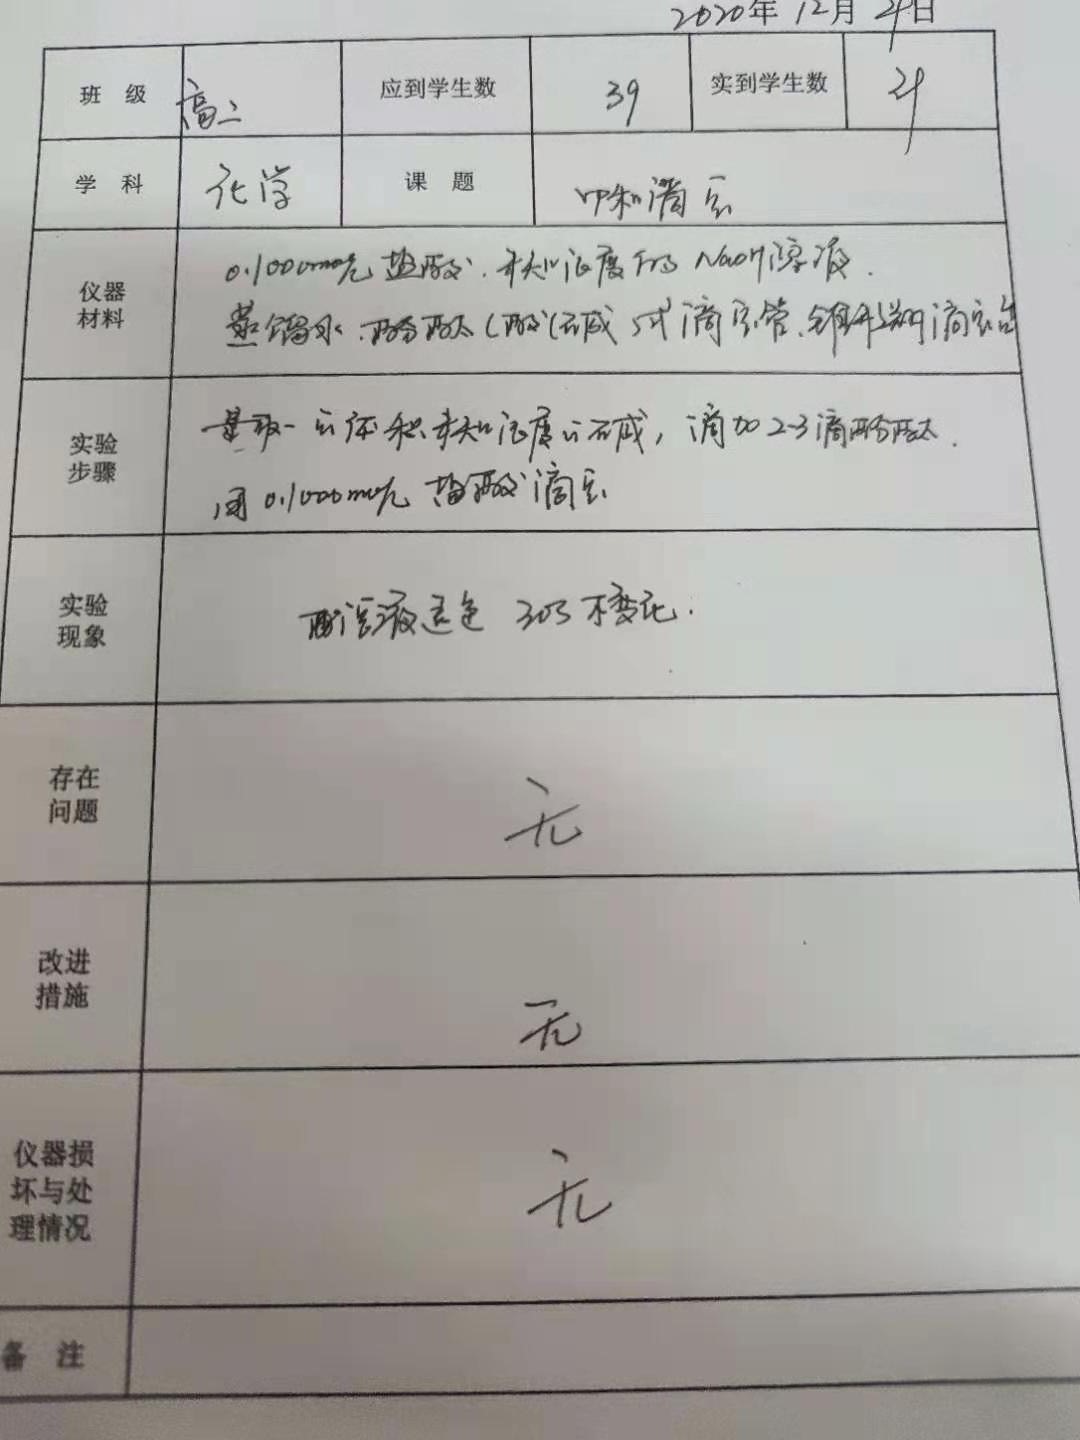 2020年12月4日
班 级 高二 应到学生数 39 实到学生数
学 科 化学 课 题 中和滴定
仪器
材料
0.1000mol/L盐酸.未知浓度的NaOH溶液.
蒸馏水.酚酞(酸(碱)式滴定管.锥形瓶滴定台
实验
步骤
量取一定体积未知浓度的碱，滴加2-3滴酚酞.
用0.1000mol/L盐酸滴定
实验
现象
溶液 色 30S不变化.
存在
问题
无
改进
措施
无
仪器损
坏与处
理情况
无
备 注